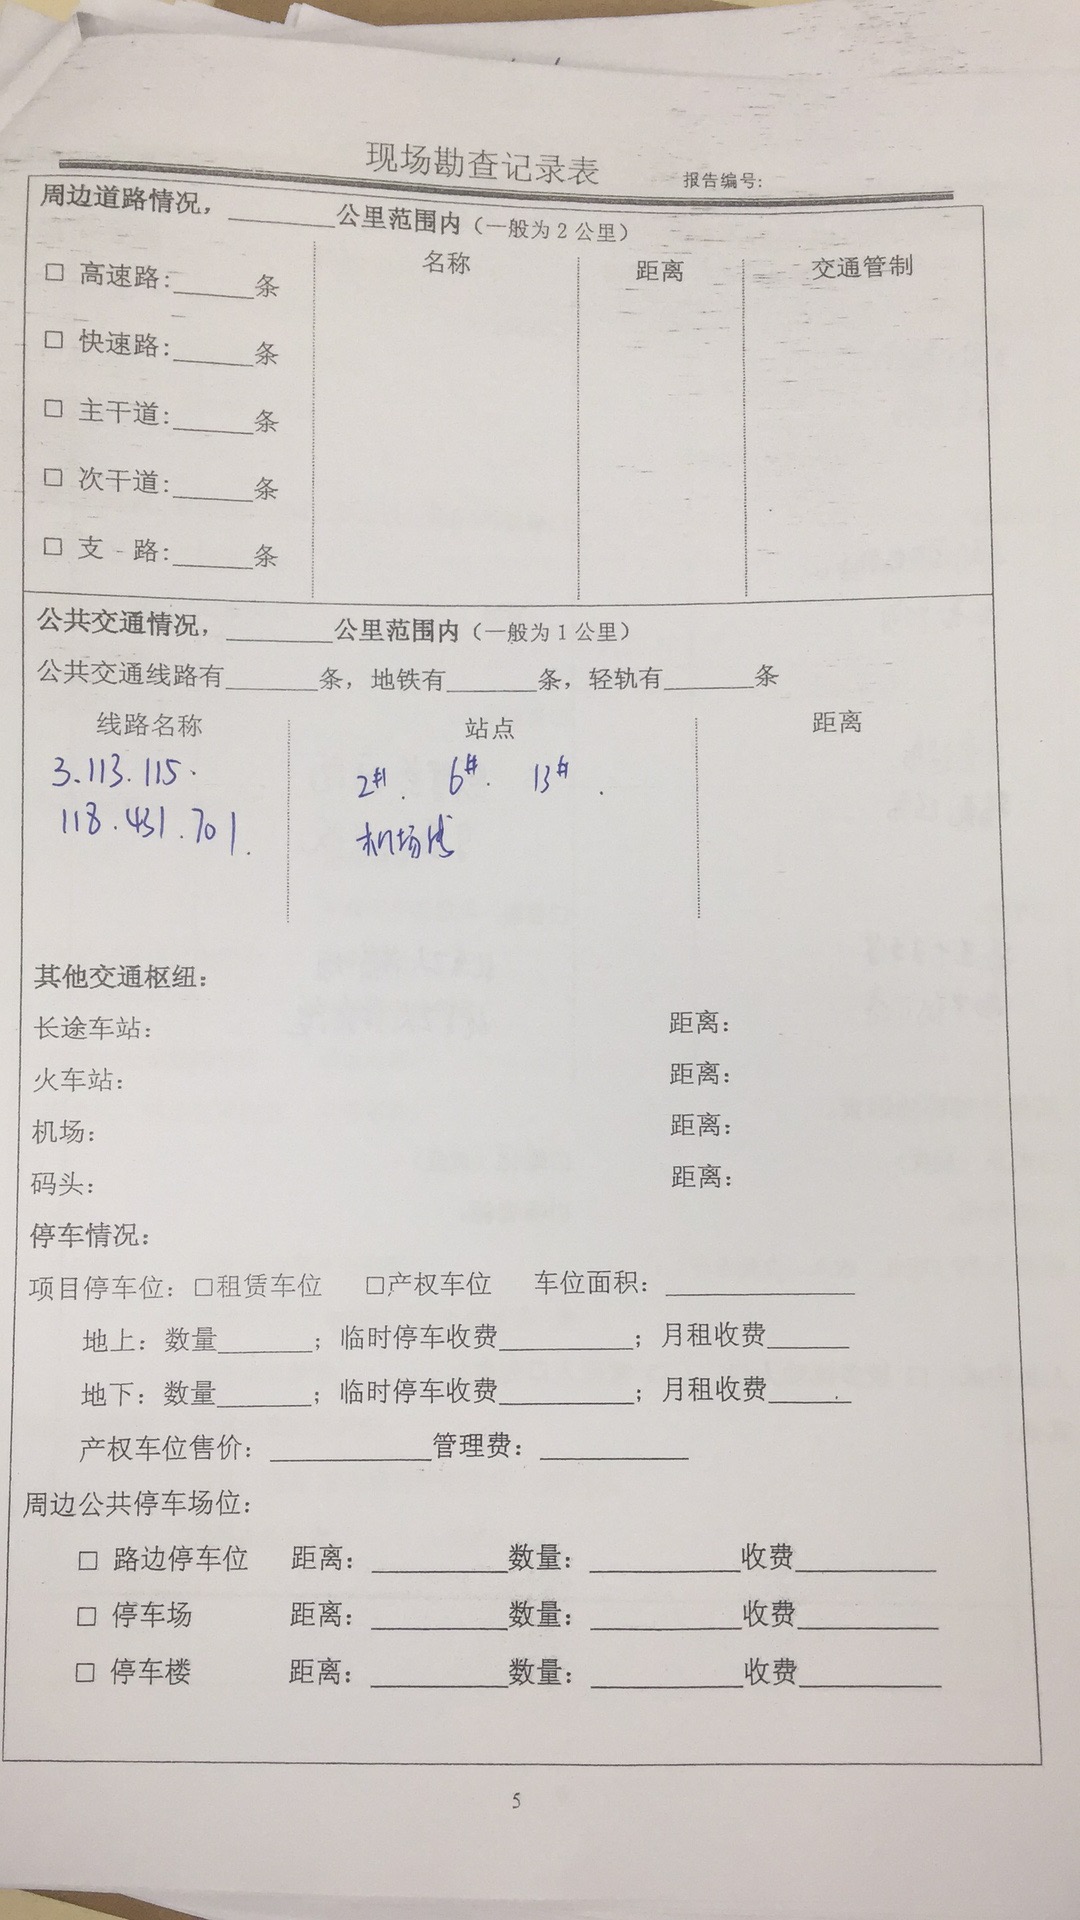 现场勘查记录表
报告编号:
周边道路情况，________公里范围内（一般为2公里）
名称 距离 交通管制
□ 高速路:______条
□ 快速路:______条
□ 主干道:______条
□ 次干道:______条
□ 支 路:______条
公共交通情况，________公里范围内（一般为1公里）
公共交通线路有_______条，地铁有_______条，轻轨有_______条
线路名称 站点 距离
3.113.115. 2#. 6#. 13#.
118.431.701. 机场线
其他交通枢纽：
长途车站： 距离：
火车站： 距离：
机场： 距离：
码头： 距离：
停车情况：
项目停车位：□租赁车位 □产权车位 车位面积：______________
地上：数量_______；临时停车收费__________；月租收费______
地下：数量_______；临时停车收费__________；月租收费______
产权车位售价：____________管理费：___________
周边公共停车场位：
□ 路边停车位 距离：__________数量：___________收费__________
□ 停车场 距离：__________数量：___________收费__________
□ 停车楼 距离：__________数量：___________收费__________
5